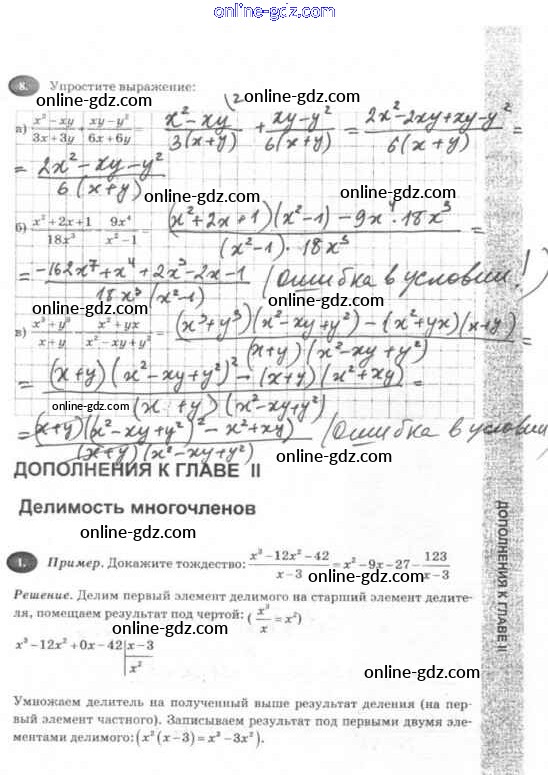 online-gdz.com
8. Упростите выражение:
online-gdz.com
а) (x² − xy)/(3x + 3y) + (xy − y²)/(6x + 6y) = (x² − xy)/(3(x+y)) \2 + (xy − y²)/(6(x+y)) = (2x² − 2xy + xy − y²)/(6(x+y)) =
online-gdz.com online-gdz.com
= (2x² − xy − y²)/(6(x+y))
online-gdz.com
б) (x² + 2x + 1)/(18x³) · (9x⁴)/(x² − 1) = ((x² + 2x + 1)(x² − 1) − 9x⁴ · 18x³)/((x² − 1) · 18x³) =
online-gdz.com
= (−162x⁷ + x⁴ + 2x³ − 2x − 1)/(18x³(x² − 1)) (ошибка в условии!)
online-gdz.com online-gdz.com
в) (x³ + y³)/(x + y) (x² + yx)/(x² − xy + y²) = ((x³ + y³)(x² − xy + y²) − (x² + yx)(x + y))/((x + y)(x² − xy + y²)) =
online-gdz.com
= ((x + y)(x² − xy + y²)² − (x + y)(x² + xy))/((x + y)(x² − xy + y²)) =
online-gdz.com online-gdz.com
= ((x + y)(x² − xy + y²)² − x² + xy)/((x + y)(x² − xy + y²)) (ошибка в условии
online-gdz.com
ДОПОЛНЕНИЯ К ГЛАВЕ II
Делимость многочленов
online-gdz.com
1. Пример. Докажите тождество: (x³ − 12x² − 42)/(x − 3) = x² − 9x − 27 − 123/(x − 3)
online-gdz.com
Решение. Делим первый элемент делимого на старший элемент делите-
ля, помещаем результат под чертой: (x³/x = x²)
online-gdz.com
x³ − 12x² + 0x − 42 | x − 3
x²
online-gdz.com
Умножаем делитель на полученный выше результат деления (на пер-
вый элемент частного). Записываем результат под первыми двумя эле-
ментами делимого: (x²(x − 3) = x³ − 3x²).
online-gdz.com
ДОПОЛНЕНИЯ К ГЛАВЕ II